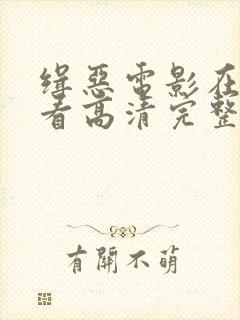 缉恶电影在
看高清完整
有關不萌